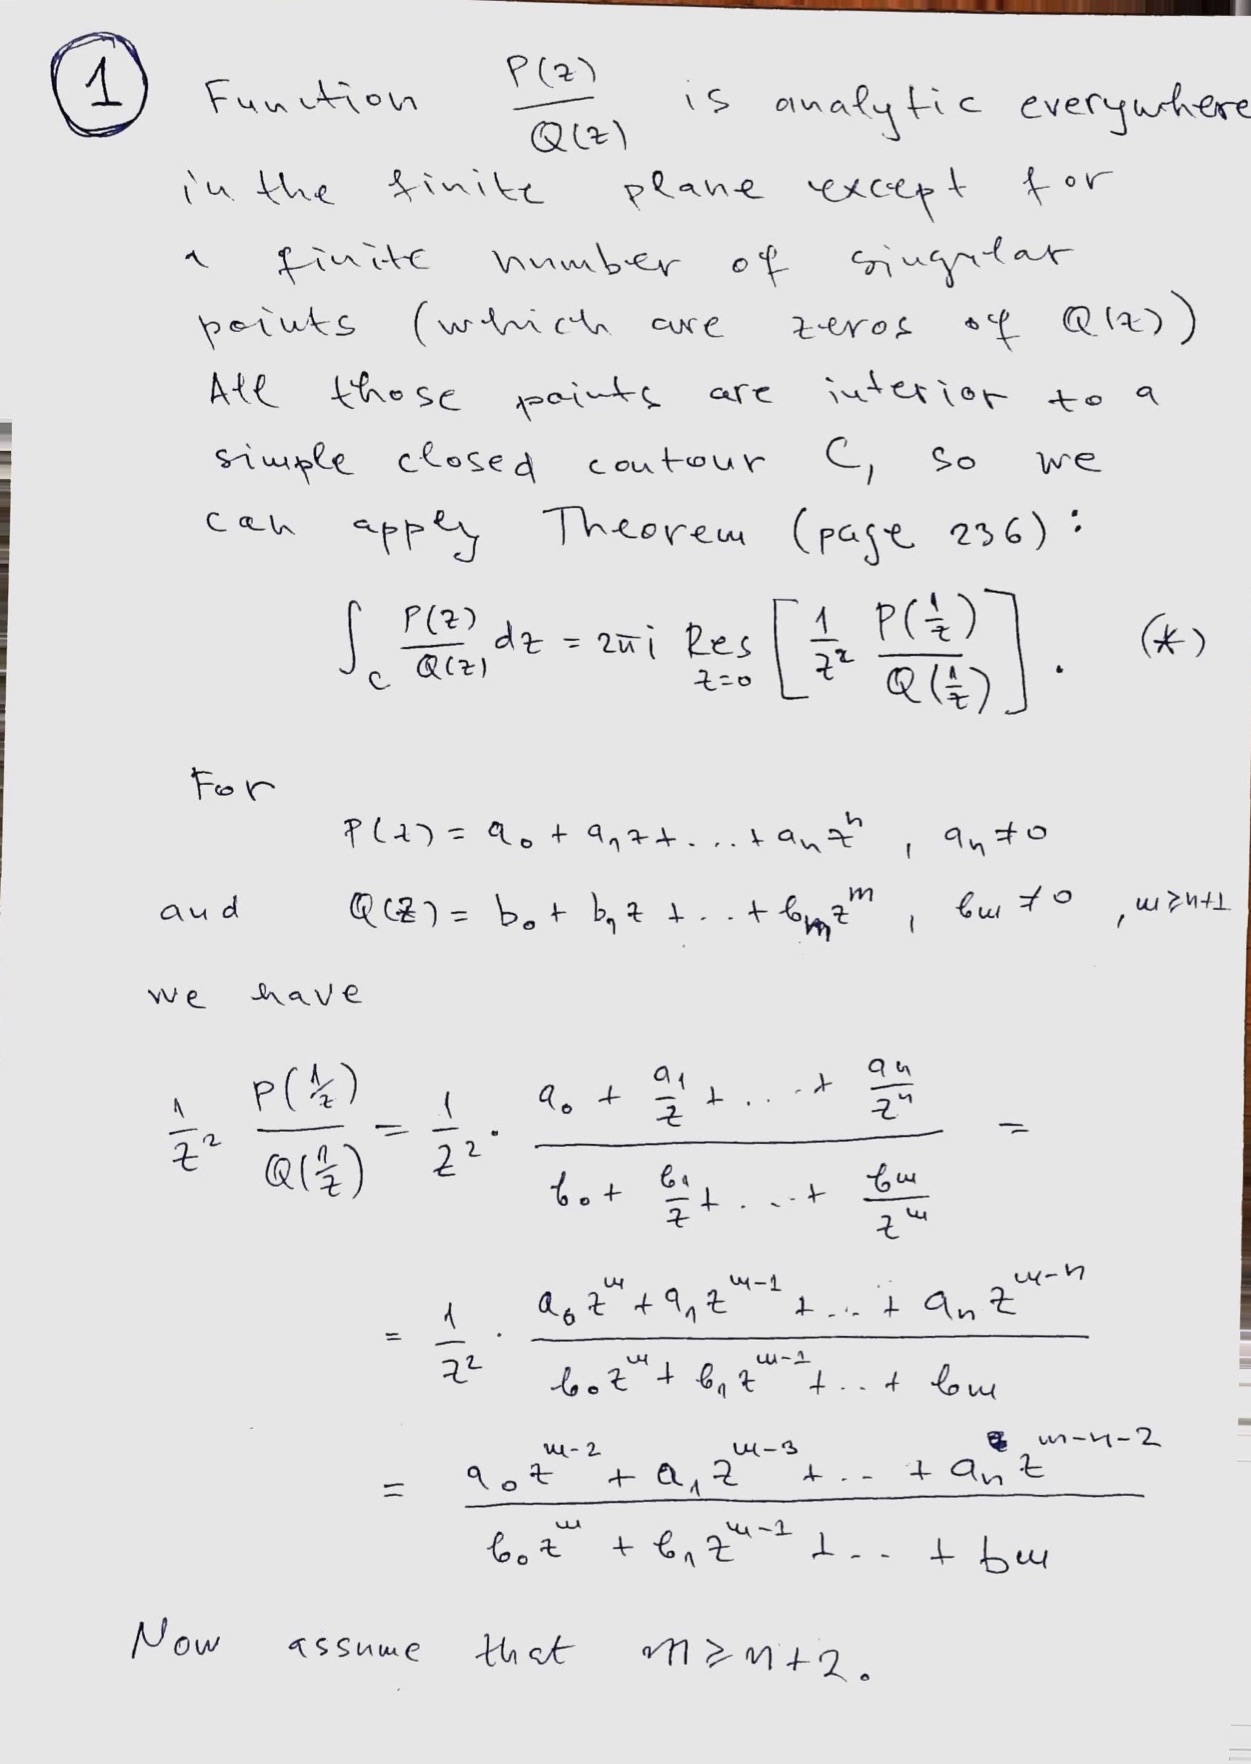 1 Function P(z)/Q(z) is analytic everywhere
in the finite plane except for
a finite number of singular
points (which are zeros of Q(z))
All those points are interior to a
simple closed contour C, so we
can apply Theorem (page 236):
∫_C P(z)/Q(z) dz = 2πi Res_{z=0} [ 1/z² P(1/z)/Q(1/z) ]. (*)
For
P(z) = a₀ + a₁z + ... + aₙzⁿ, aₙ ≠ 0
and Q(z) = b₀ + b₁z + ... + bₘzᵐ, bₘ ≠ 0, m ≥ n+1
we have
1/z² P(1/z)/Q(1/z) = 1/z² · (a₀ + a₁/z + ... + aₙ/zⁿ)/(b₀ + b₁/z + ... + bₘ/zᵐ) =
= 1/z² · (a₀zᵐ + a₁zᵐ⁻¹ + ... + aₙzᵐ⁻ⁿ)/(b₀zᵐ + b₁zᵐ⁻¹ + ... + bₘ)
= (a₀zᵐ⁻² + a₁zᵐ⁻³ + ... + aₙzᵐ⁻ⁿ⁻²)/(b₀zᵐ + b₁zᵐ⁻¹ + ... + bₘ)
Now assume that m ≥ n+2.